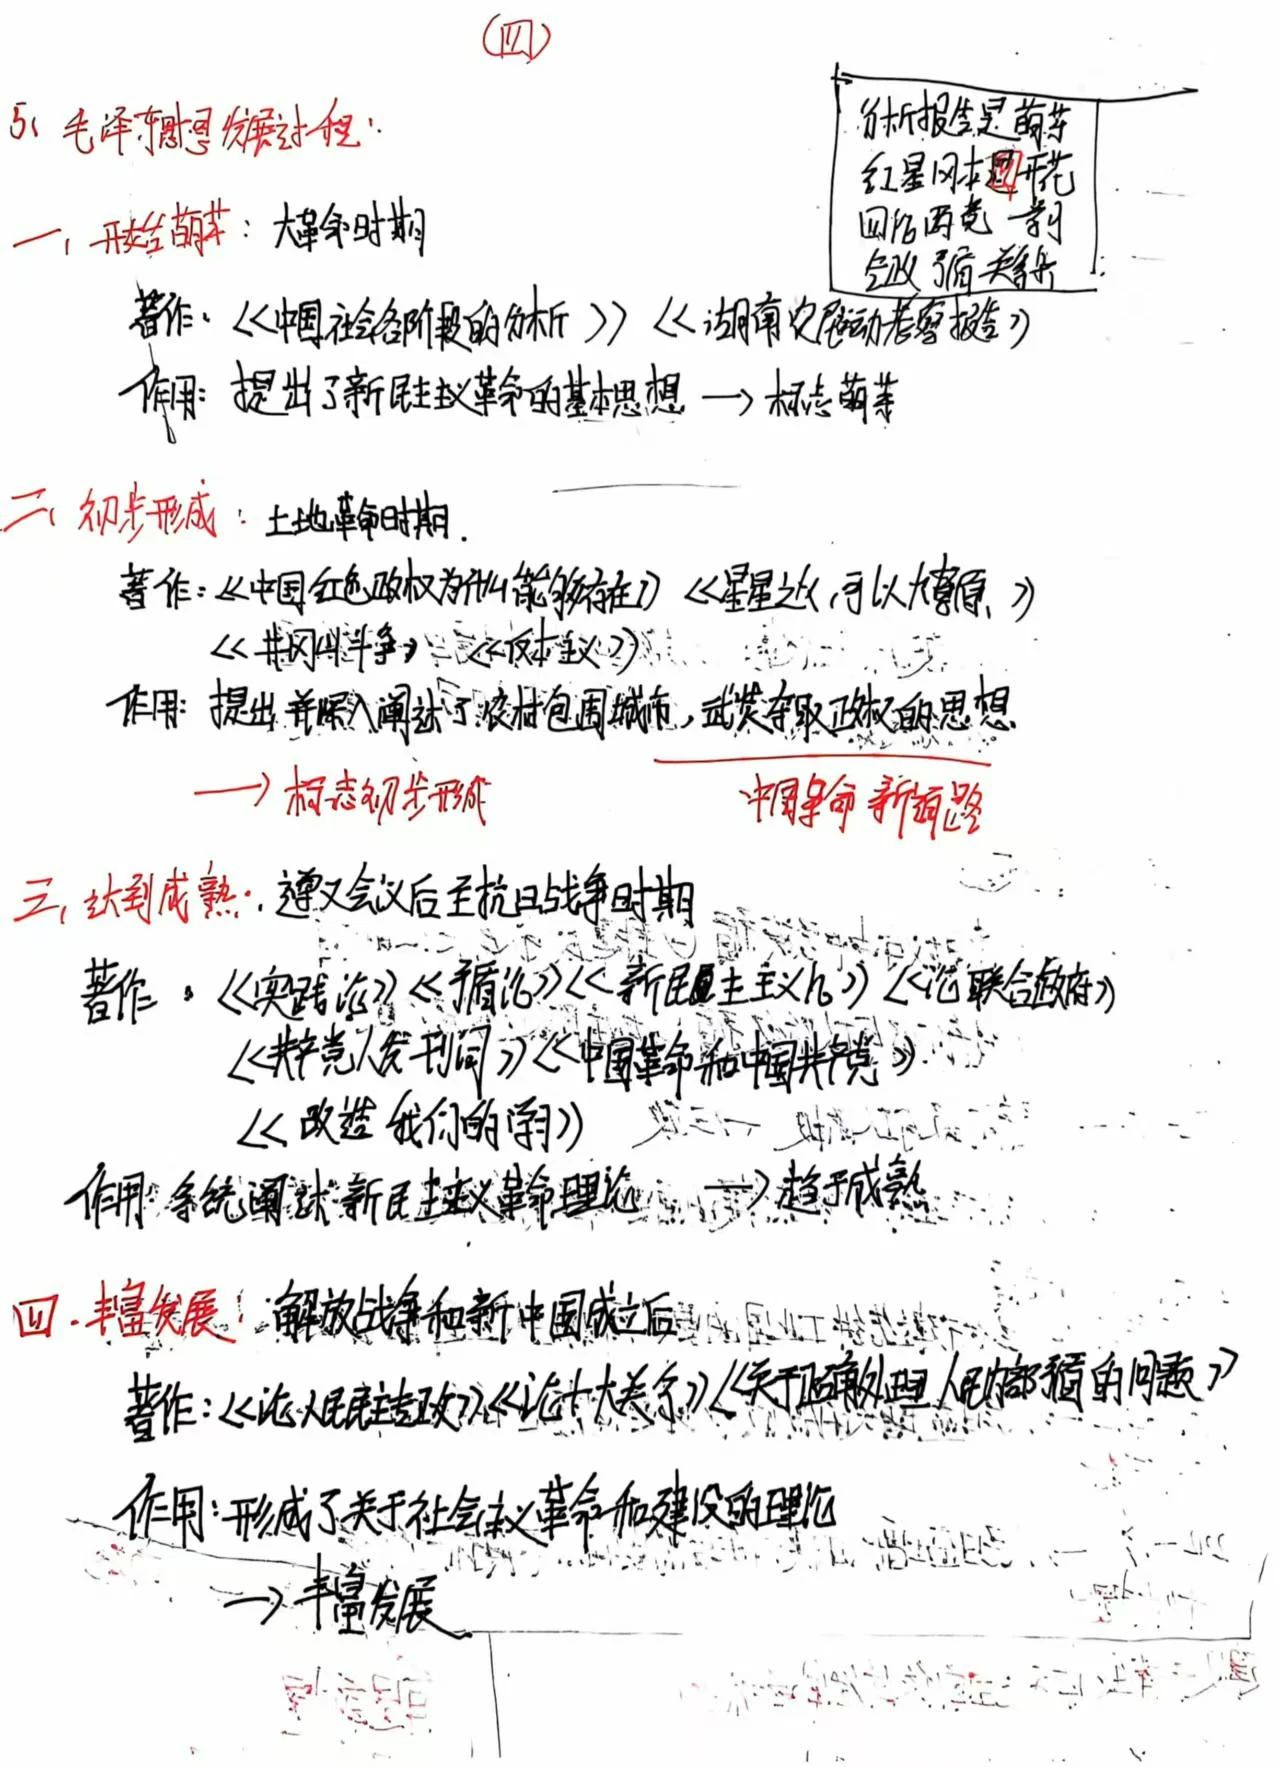 (四)
5、毛泽东思想发展过程:
分析报告是萌芽
红星冈本 开花
四论两党一学习
会政 盾关系
一、开始萌芽: 大革命时期
著作: 《中国社会各阶段的分析》《湖南农民运动考察报告》
作用: 提出了新民主主义革命的基本思想 → 标志萌芽
二、初步形成: 土地革命时期.
著作:《中国红色政权为什么能够存在》《星星之火,可以燎原》
《井冈山斗争》 《反本主义》
作用: 提出并深入阐述了农村包围城市,武装夺取政权的思想
→ 标志初步形成 中国革命新道路
三、达到成熟: 遵义会议后至抗日战争时期
著作: 《实践论》《矛盾论》《新民主主义论》《论联合政府》
《共产党人发刊词》《中国革命和中国共产党》
《改造我们的学习》
作用: 系统阐述新民主主义革命理论 → 趋于成熟
四、丰富发展: 解放战争和新中国成立后
著作:《论人民民主专政》《论十大关系》《关于正确处理人民内部矛盾的问题》
作用: 形成了关于社会主义革命和建设的理论
→ 丰富发展